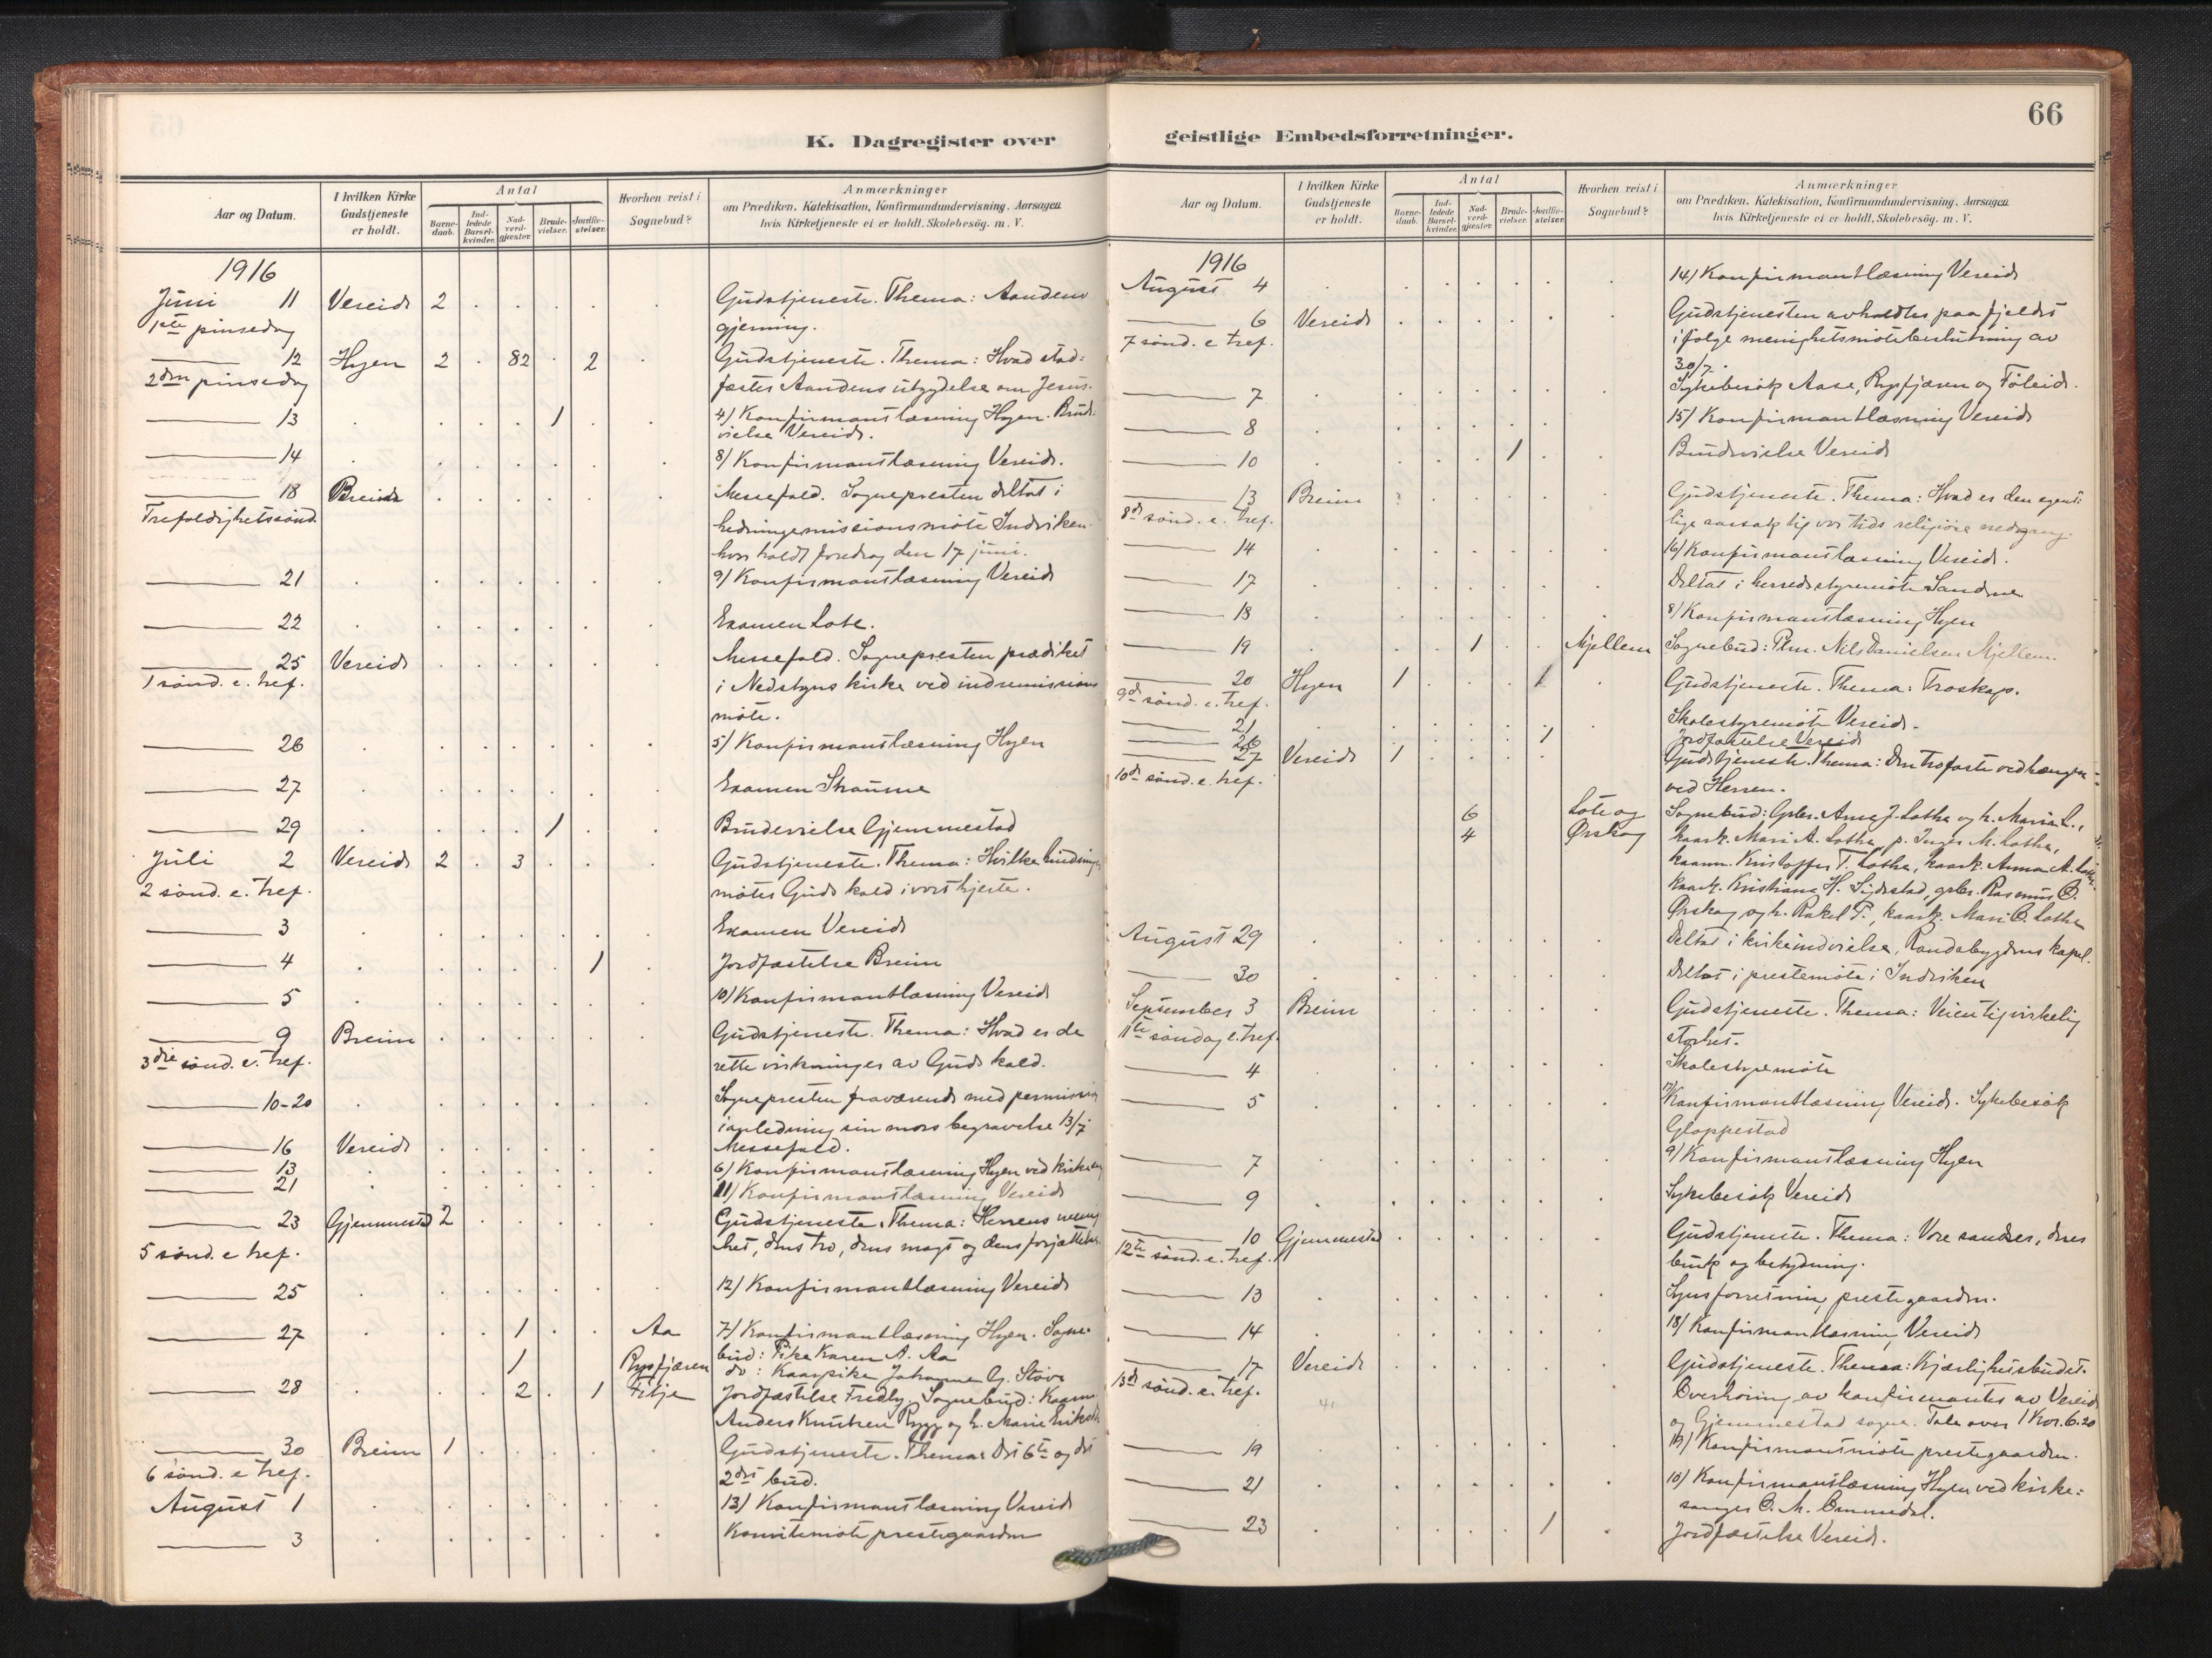 66
K. Dagregister over
Aar og Datum.
I hvilken Kirke Gudstjeneste er holdt.
Antal
Barne-daab.
Ind-ledede Barsel-kvinder.
Nad-verd-gjæster
Brude-vielser.
Jordfæ-stelser.
Hvorhen reist i Sognebud?
Anmærkninger
om Prædiken, Katekisation, Konfirmandundervisning. Aarsagen
hvis Kirketjeneste ei er holdt. Skolebesög. m. V.
1916
Juni 11 Vereide 2 . . . . . Gudstjeneste. Thema: Aandens
1ste pinsedag gjerning.
12 Hyen 2 . 82 . 2 . Gudstjeneste. Thema: Hvad stad:
2den pinsedag fæster Aandens utgydelse om Jesus.
13 . . . . 1 . . 4) Konfirmantlæsning Hyen. Brude:
vielse Vereide.
14 . . . . . . . 8) Konfirmantlæsning Vereide.
18 Breim . . . . . . Messefald. Sognepresten deltat i
Trefoldighetssønd. hedningemissionsmøte Indviken
hvor holdt foredrag den 17 juni.
21 . . . . . . . 9) Konfirmantlæsning Vereide
22 . . . . . . . Examen Lote.
25 Vereide . . . . . . Messefald. Sognepresten prædiket
1 sønd. e. tref. i Nedstryns kirke ved indremissions
møte.
26 . . . . . . . 5) Konfirmantlæsning Hyen
27 . . . . . . . Examen Straume
29 . . . . 1 . . Brudevielse Gjemmestad
Juli 2 Vereide 2 . 3 . . . Gudstjeneste. Thema: Hvilke hindringer
2 sønd. e. tref. møter Guds kald i vort hjerte.
3 . . . . . . . Examen Vereide
4 . . . . . 1 . Jordfæstelse Breim
5 . . . . . . . 10) Konfirmantlæsning Vereide
9 Breim . . . . . . Gudstjeneste. Thema: Hvad er de
3die sønd. e. tref. rette virkninger av Guds kald.
10-20 . . . . . . . Sognepresten fraværende med permission
i anledning sin mors begravelse 13/7
16 Vereide . . . . . . Messefald.
13 . . . . . . . 6) Konfirmantlæsning Hyen ved kirkesang
21 . . . . . . . 11) Konfirmantlæsning Vereide
23 Gjemmestad 2 . . . . . Gudstjeneste. Thema: Herrens menig
5 sønd. e tref. het, dens tro, dens magt og dens forjættelse.
25 . . . . . . . 12) Konfirmantlæsning Vereide
27 . . . 1 . . Aa 7) Konfirmantlæsning Hyen. Sogne-
bud: Pike Karen A. Aa
1 Rygfjæren do: Kaarpike Johanne G. Støve
28 . . . 2 . 1 Jordfæstelse Fredly. Sognebud: Kaarm.
Anders Knutsen Rygg og h. Marie
30 Breim 1 . . . . . Gudstjeneste. Thema: Det 6te og det
6 sønd. e tref. 2det bud.
August 1 . . . . . . . 13) Konfirmantlæsning Vereide
3 . . . . . . . Komitemøte prestegaarden
geistlige Embedsforretninger.
Aar og Datum.
I hvilken Kirke Gudstjeneste er holdt.
Antal
Barne-daab.
Ind-ledede Barsel-kvinder.
Nad-verd-gjæster
Brude-vielser.
Jordfæ-stelser.
Hvorhen reist i Sognebud?
Anmærkninger
om Prædiken, Katekisation, Konfirmandundervisning. Aarsagen
hvis Kirketjeneste ei er holdt. Skolebesög. m. V.
1916
August 4 . . . . . . . 14) Konfirmantlæsning Vereide
6 Vereide . . . . . . Gudstjenesten avholdtes paa fjeldet
7 sønd. e tref. ifølge menighetsmøtebeslutning av
30/7.
7 . . . . . . . Sykebesøk Aase, Rygfjæren og Føleide.
8 . . . . . . . 15) Konfirmantlæsning Vereide
10 . . . . 1 . . Brudevielse Vereide
13 Breim . . . . . . Gudstjeneste. Thema: Hvad er den egent:
8de sønd. e. tref. lige aarsak til vor tids religiøse nedgang.
14 . . . . . . . 16) Konfirmantlæsning Vereide.
17 . . . . . . . Deltat i herredsstyremøte Sandene
18 . . . . . . . 8) Konfirmantlæsning Hyen
19 . . . 1 . . Mjellem Sognebud: Plm. Nils Danielsen Mjellem.
20 Hyen 1 . . . 1 . Gudstjeneste. Thema: Troskap.
9de sønd. e. tref.
21 . . . . . . Skolestyremøte Vereide.
26 . . . . . 1 . Jordfæstelse Vereide
27 Vereide 1 . . . . Gudstjeneste. Thema: Den trofaste vedhængen
10de sønd. e. tref. ved Herren.
6 Lote og Sognebud: Gbr. Arne J. Lothe og h. Maria L.,
4 Ørskog kaark. Mari A. Lothe, p. Inger M. Lothe,
kaarm. Kristoffer T. Lothe, kaark. Anna A. Lothe
kaark. Kristiane H. Sigdestad, gbr. Rasmus O.
Ørskog og h. Rakel P., kaark. Mari O. Lothe
August 29 . . . . . . . Deltat i kirkeindvielse, Randabygdens kapel.
30 . . . . . . . Deltat i prestemøte i Indviken
September 3 Breim . . . . . Gudstjeneste. Thema: Veien til virkelig
11te søndag e. tref. storhet.
4 . . . . . . . Skolestyremøte
5 . . . . . . . 17) Konfirmantlæsning Vereide. Sykebesøk
Gloppestad
7 . . . . . . . 9) Konfirmantlæsning Hyen
9 . . . . . . . Sykebesøk Vereide
10 Gjemmestad . . . . . . Gudstjeneste. Thema: Vore sandser, deres
12te sønd. e. tref. bruk og betydning.
13 . . . . . . . Synsforretning prestegaarden.
14 . . . . . . . 18) Konfirmantlæsning Vereide
17 Vereide . . . . . . Gudstjeneste. Thema: Kjærlighetsbudet.
13de sønd. e. tref. Overhøring av konfirmanter av Vereide
og Gjemmestad sogne. Tale over 1 Kor. 6.20
19 . . . . . . . 19) Konfirmantmøte prestegaarden.
21 . . . . . . . 10) Konfirmantlæsning Hyen ved kirke:
sanger O. M. Ommedal.
23 . . . . . 1 . Jordfæstelse Vereide.